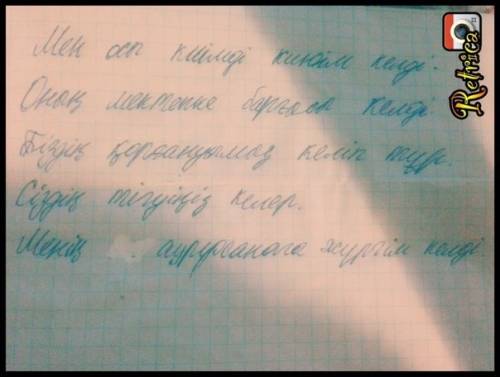 Мен осы киімді кигім келді.
Оның мектепке барғысы келді
Біздің қорғануымыз келіп тұр.
Сіздің тігуіңіз келер.
Менің ауруханаға жүргім келді
Retrica